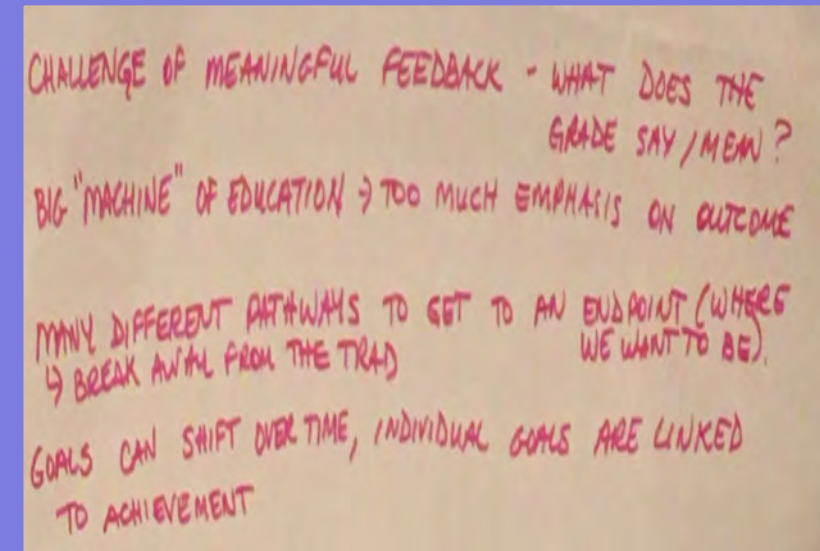 CHALLENGE OF MEANINGFUL FEEDBACK - WHAT DOES THE
GRADE SAY / MEAN ?
BIG "MACHINE" OF EDUCATION → TOO MUCH EMPHASIS ON OUTCOME
MANY DIFFERENT PATHWAYS TO GET TO AN ENDPOINT (WHERE
WE WANT TO BE).
↳ BREAK AWAY FROM THE TRAD
GOALS CAN SHIFT OVER TIME, INDIVIDUAL GOALS ARE LINKED
TO ACHIEVEMENT